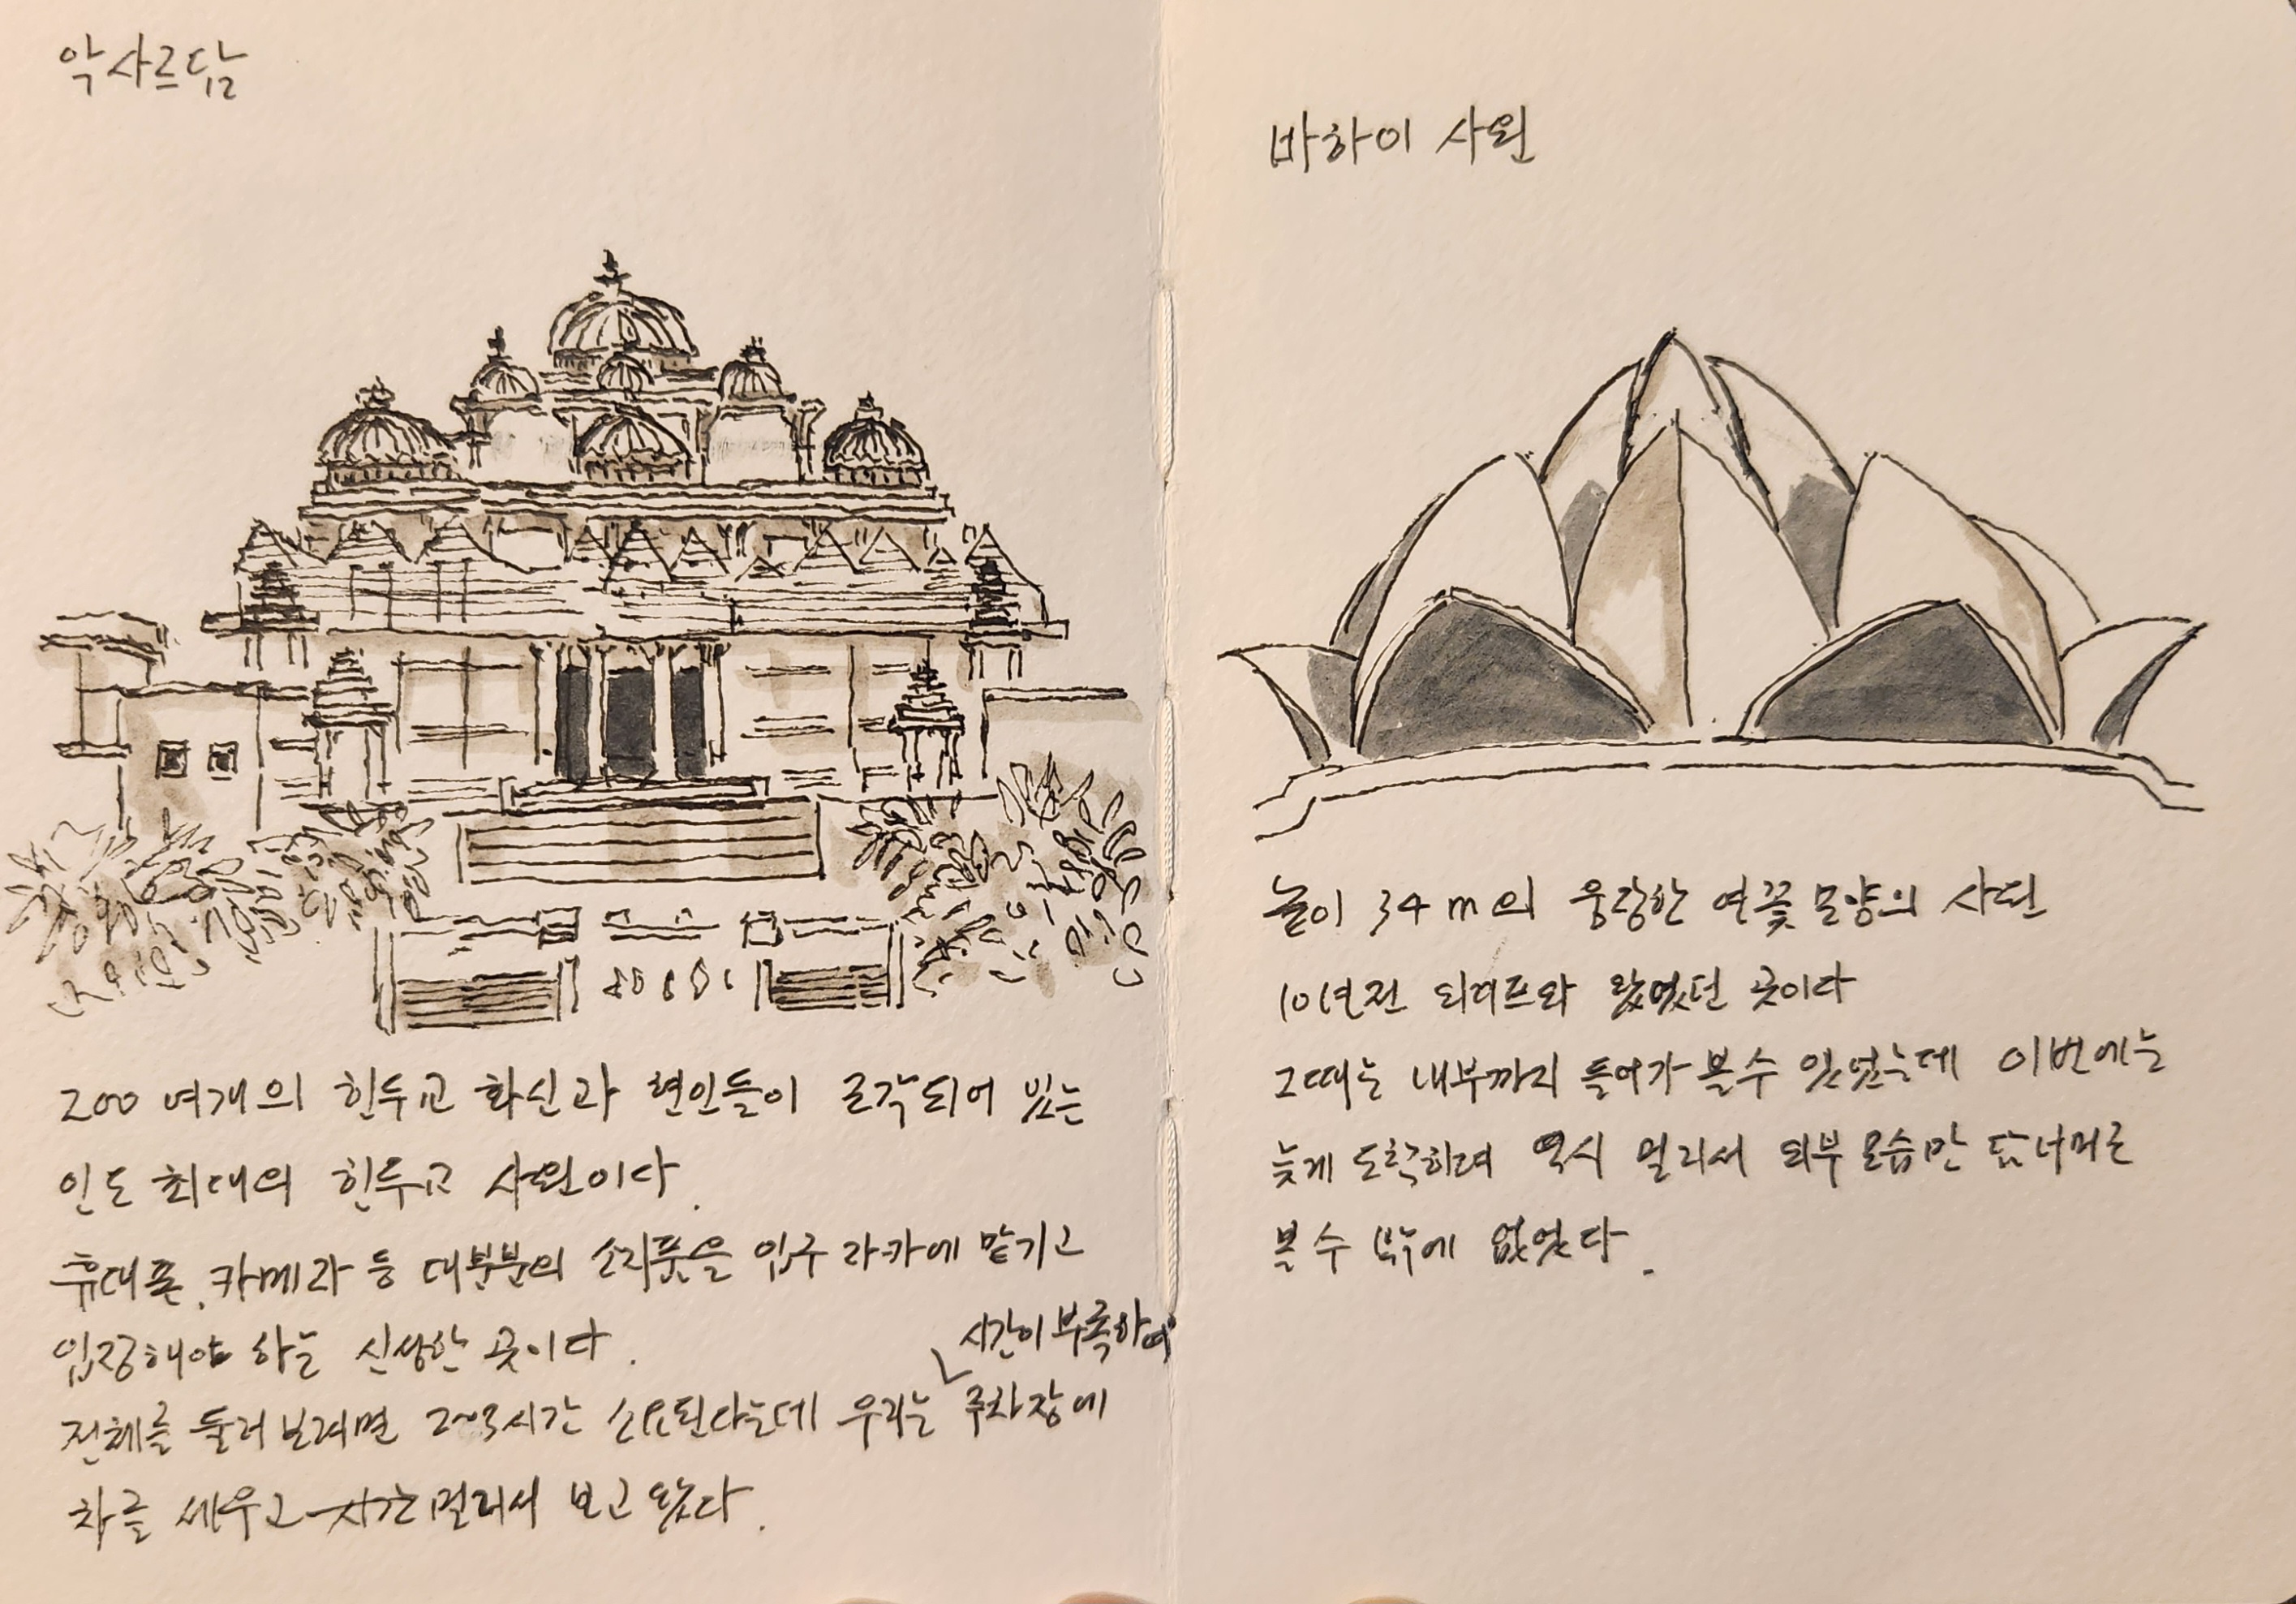 악사르담
200 여개의 힌두교 화신과 현인들이 조각되어 있는
인도 최대의 힌두교 사원이다.
휴대폰, 카메라 등 대부분의 소지품을 입구 라카에 맡기고
입장해야 하는 신성한 곳이다.
시간이 부족하여
전체를 둘러보려면 2~3시간 소요된다는데 우리는 주차장에
차를 세우고 시간 멀리서 보고 왔다.
바하이 사원
높이 34m의 웅장한 연꽃모양의 사원
10년전 와 왔었던 곳이다
그때는 내부까지 들어가 볼수 있었는데 이번에는
늦게 도착하여 역시 멀리서 외부모습만 담너머로
볼 수 밖에 없었다.